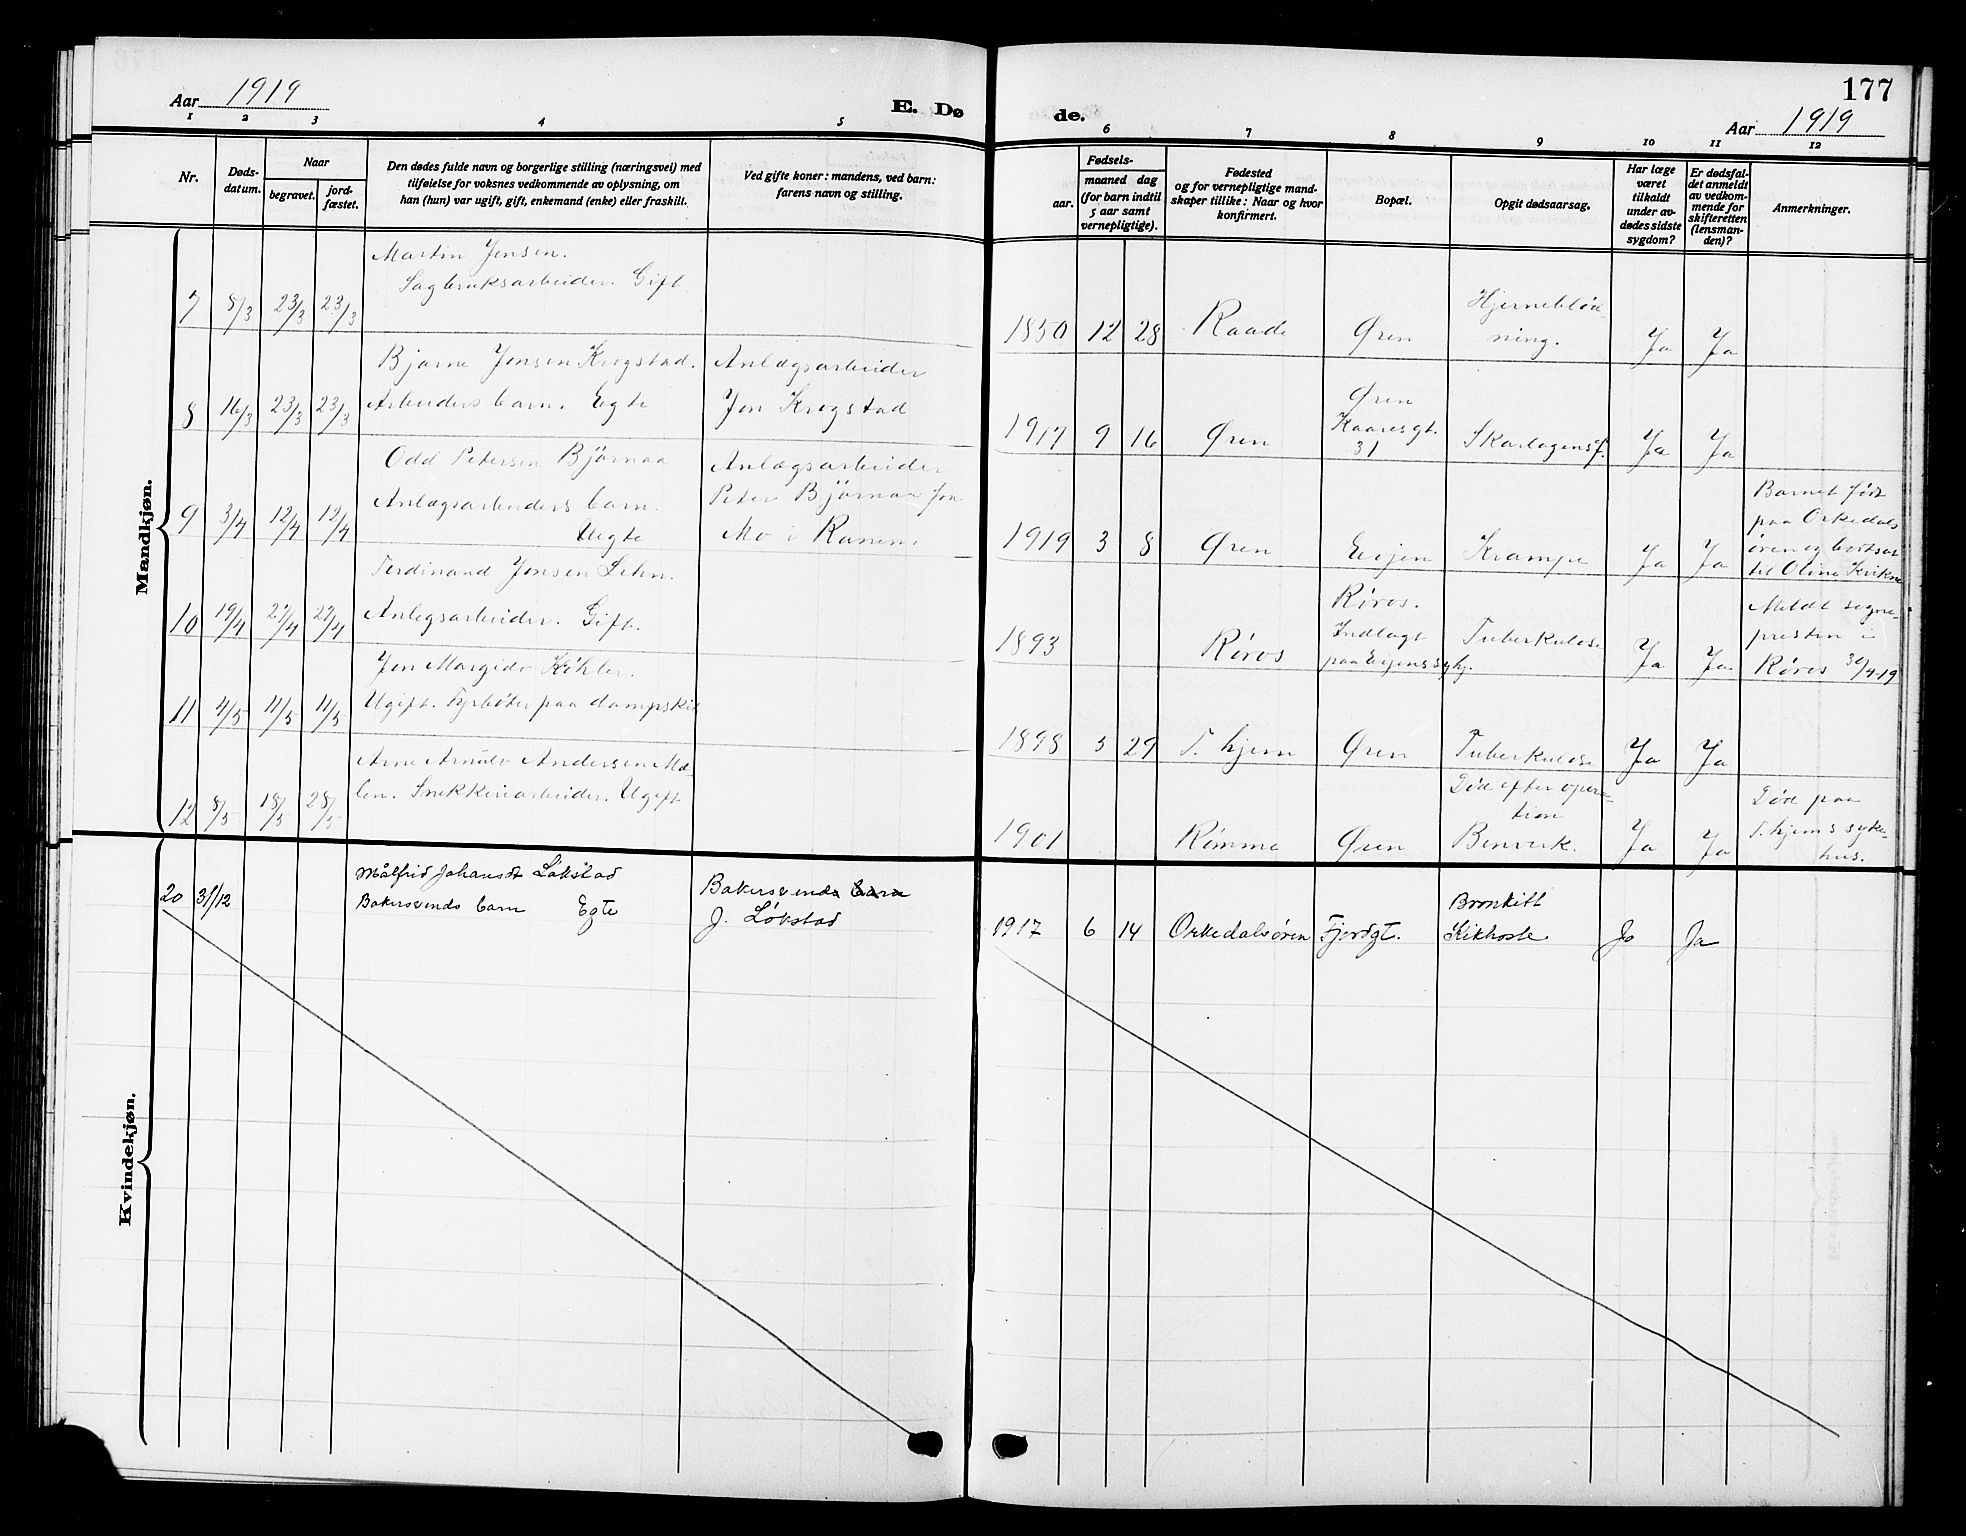 177
Aar 1919
E. Dø
de.
Aar 1919
1 2 3 4 5 6 7 8 9 10 11 12
Nr.
Døds-
datum.
Naar
begravet.
jord-
fæstet.
Den dødes fulde navn og borgerlige stilling (næringsvei) med
tilføielse for voksnes vedkommende av oplysning, om
han (hun) var ugift, gift, enkemand (enke) eller fraskilt.
Ved gifte koner: mandens, ved barn:
farens navn og stilling.
Fødsels-
aar.
maaned dag
(for barn indtil
5 aar samt
vernepligtige).
Fødested
og for vernepligtige mand-
skaper tillike: Naar og hvor
konfirmert.
Bopæl.
Opgit dødsaarsag.
Har læge
været
tilkaldt
under av-
dødes sidste
sygdom?
Er dødsfal-
det anmeldt
av vedkom-
mende for
skifteretten
(lensman-
den)?
Anmerkninger.
Mandkjøn.
Martin Jensen.
Sagbruksarbeider. Gift.
7 8/3 23/3 23/3
1850 12 28 Raade Øren
Hjerneblød-
ning.
Ja Ja
Bjarne Jonsen Krogstad.
Arbeiders barn. Egte
Anlægsarbeider
Jon Krogstad
8 16/3 23/3 23/3
1917 9 16 Øren
Øren
Kaaresgt.
31
Skarlagensf.
Ja Ja
Odd Petersen Bjørnaa
Anlægsarbeiders barn.
Uegte
Anlægsarbeider
Peter Bjørnaa fra
Mo i Ranen.
9 3/4 12/4 12/4
1919 3 8 Øren Evjen Krampe Ja Ja
Barnet født
paa Orkedals
øren og bortsat
til Oline Krikne
Ferdinand Jonsen Lehn.
Anlegsarbeider. Gift.
10 19/4 27/4 27/4
1893 Røros
Røros.
Indlagt
paa Evjens sykj.
Tuberkulose
Ja Ja
Meldt sogne-
presten i
Røros 30/4-19
Jon Margido Köhler.
Ugift. Fyrbøter paa dampskib
11 4/5 11/5 11/5
1898 5 29 T.hjem Øren Tuberkulose Ja Ja
Arne Arnulv Andersen Mæ-
len. Snekkeriarbeider. Ugift
12 8/5 18/5 28/5
1901 Rømme Øren
Død efter opera-
tion
Benverk.
Ja Ja
Død paa
T.hjems syke-
hus.
Kvindekjøn.
20 31/12
Målfrid Johansdt Løkstad
Bakersvends barn Egte
Bakersvends barn
J. Løkstad
1917 6 14 Orkedalsøren Fjordgt.
Bronkitt
Kikhoste
Ja Ja